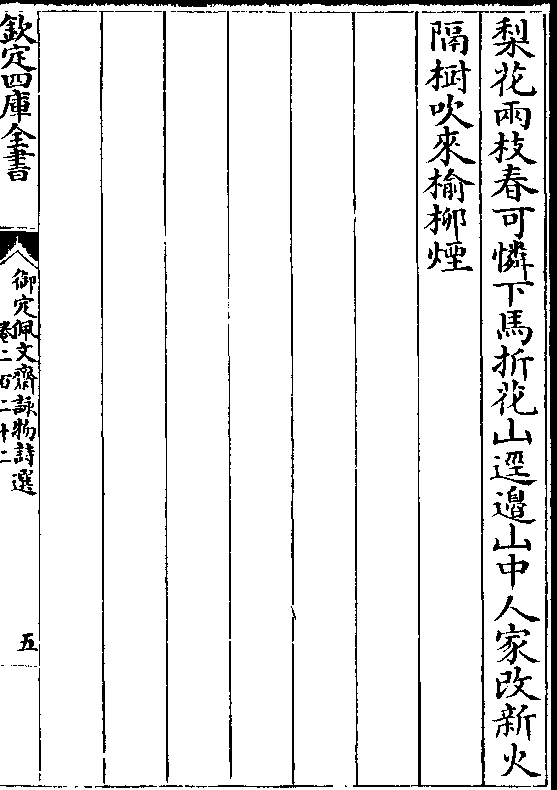 梨花兩枝春可憐下馬折花山逕邉山中人家改新火
隔樹吹來榆栁煙
欽定四庫全書
御定佩文齋詠物詩選
卷二百二十二
五